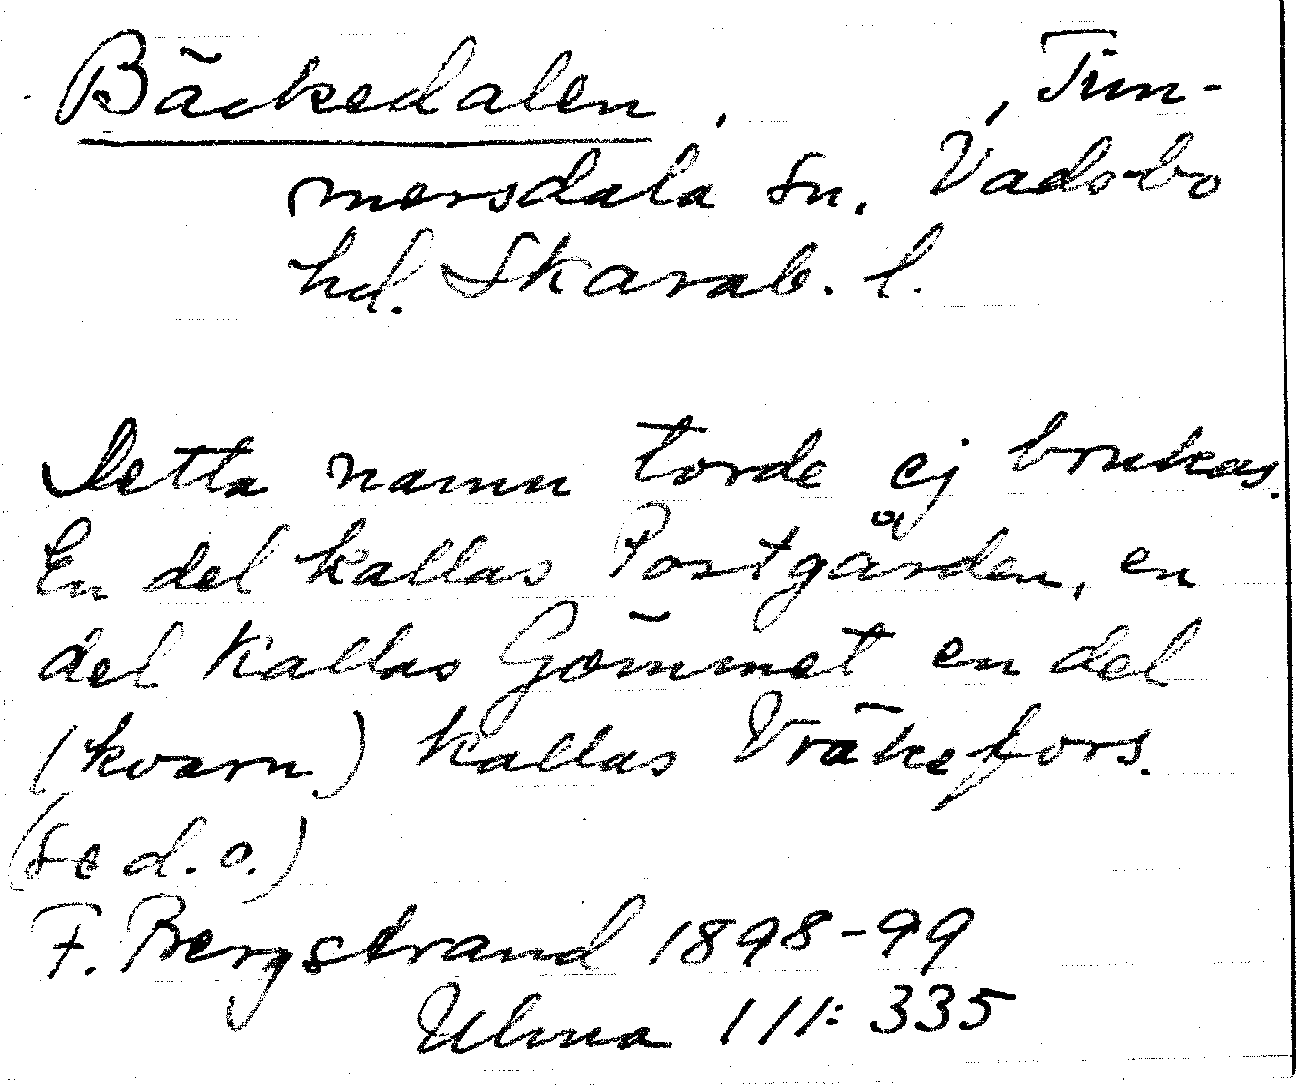 Bäckedalen. , Tim-
mersdala sn. Vadsbo
hd. Skarab. l.
Detta namn torde ej brukas.
En del kallas Postgården, en
del kallas Gömmet en del
(kvarn) kallas Vräkefors.
(se d. o.)
F. Bergstrand 1898-99
Ulma 111:335